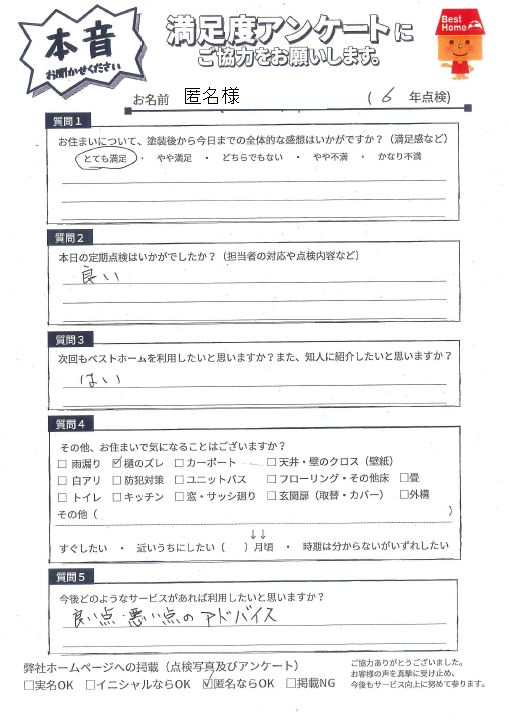 本音
お聞かせください
満足度アンケートに
ご協力をお願いします。
Best
Home
お名前 匿名様 ( 6 年点検)
質問1
お住まいについて、塗装後から今日までの全体的な感想はいかがですか?(満足感など)
とても満足 ・ やや満足 ・ どちらでもない ・ やや不満 ・ かなり不満
質問2
本日の定期点検はいかがでしたか?(担当者の対応や点検内容など)
良い
質問3
次回もベストホームを利用したいと思いますか?また、知人に紹介したいと思いますか?
はい
質問4
その他、お住まいで気になることはございますか?
□ 雨漏り ☑ 樋のズレ □ カーポート □ 天井・壁のクロス(壁紙)
□ 白アリ □ 防犯対策 □ ユニットバス □ フローリング・その他床 □畳
□ トイレ □ キッチン □ 窓・サッシ廻り □ 玄関扉(取替・カバー) □外構
その他( )
↓↓
すぐしたい ・ 近いうちにしたい( )月頃 ・ 時期は分からないがいずれしたい
質問5
今後どのようなサービスがあれば利用したいと思いますか?
良い点・悪い点のアドバイス
弊社ホームページへの掲載(点検写真及びアンケート)
□実名OK □イニシャルならOK ☑匿名ならOK □掲載NG
ご協力ありがとうございました。
お客様の声を真摯に受け止め、
今後もサービス向上に努めて参ります。